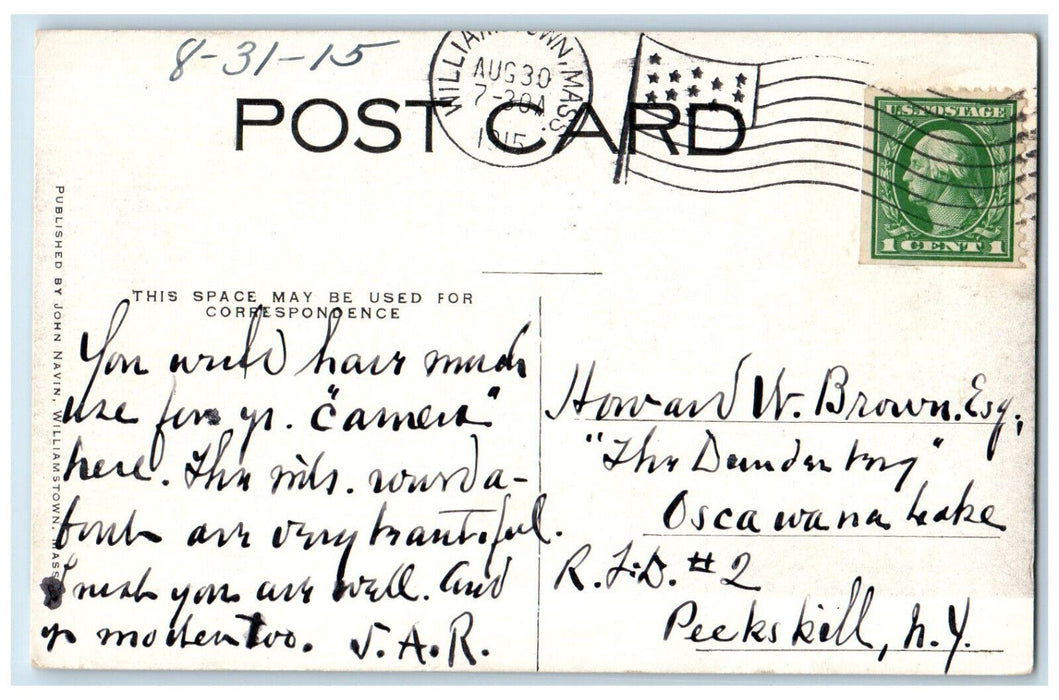 8-31-15
WILLIAMSTOWN, MASS.
AUG 30
7-30A
1915
POST CARD
U.S. POSTAGE
1 CENT 1
PUBLISHED BY JOHN NAVIN, WILLIAMSTOWN, MASS.
THIS SPACE MAY BE USED FOR
CORRESPONDENCE
You would have much
use for yr. "camera"
here. The mts. round a-
bout are very beautiful.
you are well. And
yr mother too. J. A. R.
Howard W. Brown. Esq,
"The Dunderberg"
Oscawana Lake
R. F. D. #2
Peekskill, N. Y.